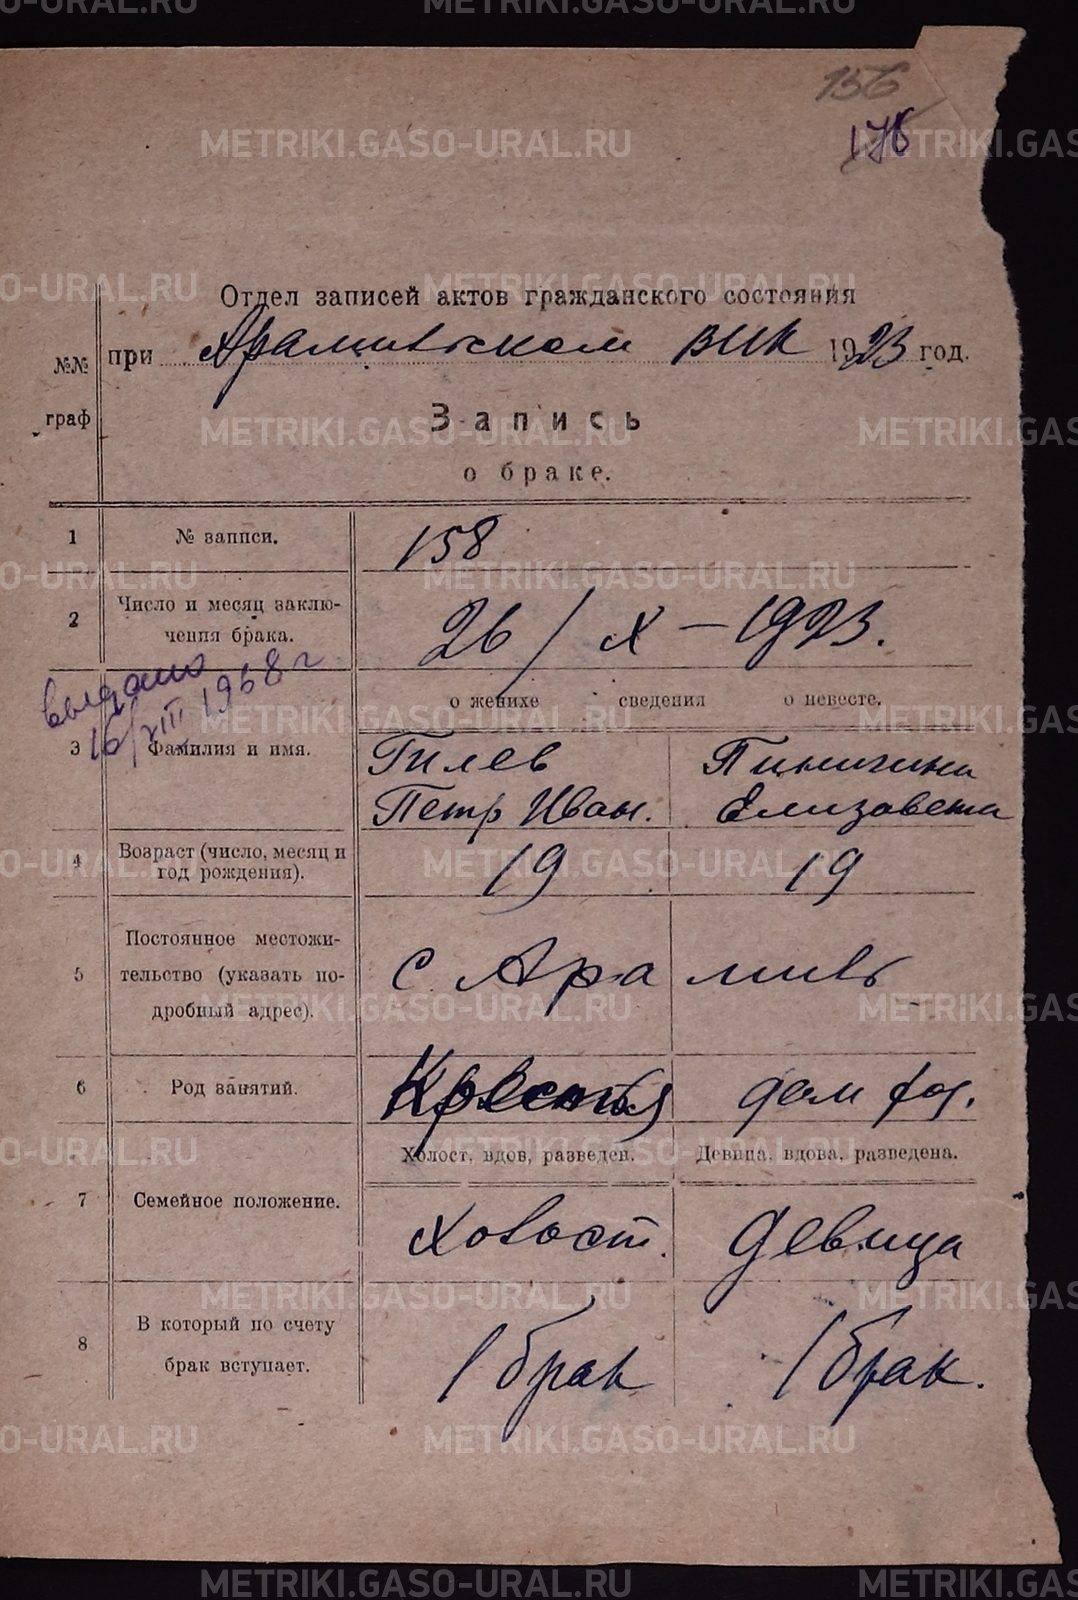 156
178
Отдел записей актов гражданского состояния
при Арамильском ВИК 1923 год.
№№
граф
Запись
о браке.
1 № записи. 158
2 Число и месяц заклю-
чения брака. 26/X – 1923.
выдано
16/VIII 1968 г
о женихе сведения о невесте.
3 Фамилия и имя. Гилев
Петр Иван. Елизовета
4 Возраст (число, месяц и
год рождения). 19 19
5 Постоянное местожи-
тельство (указать по-
дробный адрес). с Арамиль
6 Род занятий. Крестья дом хоз.
Холост, вдов, разведен. Девица, вдова, разведена.
7 Семейное положение. Холост. Девица
8 В который по счету
брак вступает. 1 брак 1 брак.
METRIKI.GASO-URAL.RU